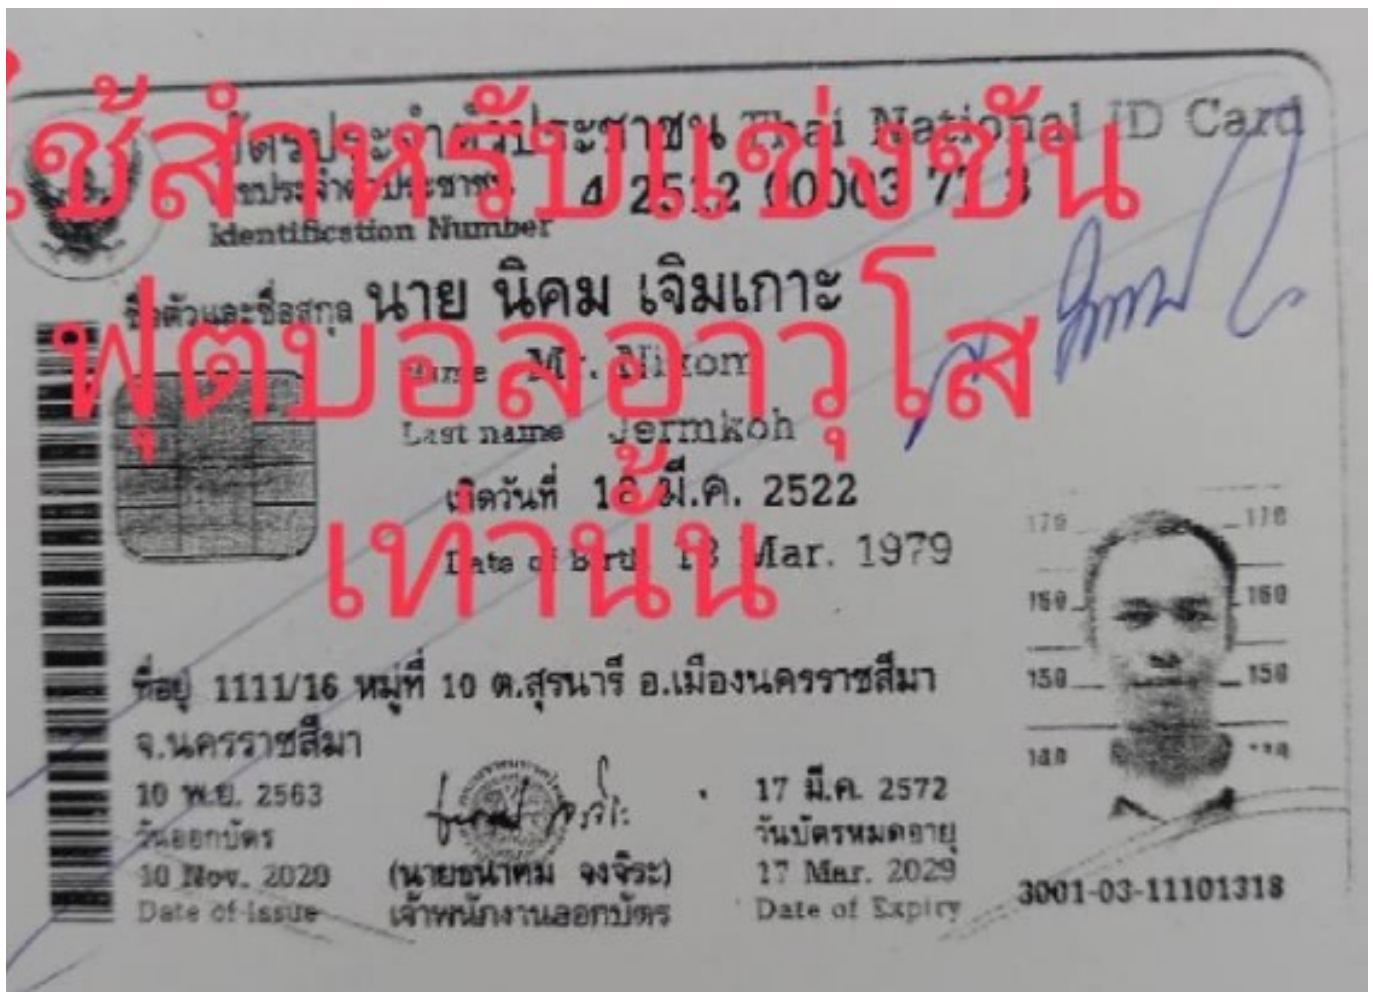 ใช้สำหรับแข่งขัน
ฟุตบอลอาวุโส
เท่านั้น
บัตรประจำตัวประชาชน Thai National ID Card
เลขประจำตัวประชาชน 4 2512 00003
Identification Number
ชื่อตัวและชื่อสกุล นาย นิคม เจิมเกาะ
Name Mr. Nikom
Last name Jermkoh
เกิดวันที่ มี.ค. 2522
Date of Birth Mar. 1979
ที่อยู่ 1111/16 หมู่ที่ 10 ต.สุรนารี อ.เมืองนครราชสีมา
จ.นครราชสีมา
10 พ.ย. 2563
วันออกบัตร
10 Nov. 2020
Date of Issue
(นายธนาคม จงจิระ)
เจ้าพนักงานออกบัตร
17 มี.ค. 2572
วันบัตรหมดอายุ
17 Mar. 2029
Date of Expiry
170 170
160 160
150 150
140
3001-03-11101318